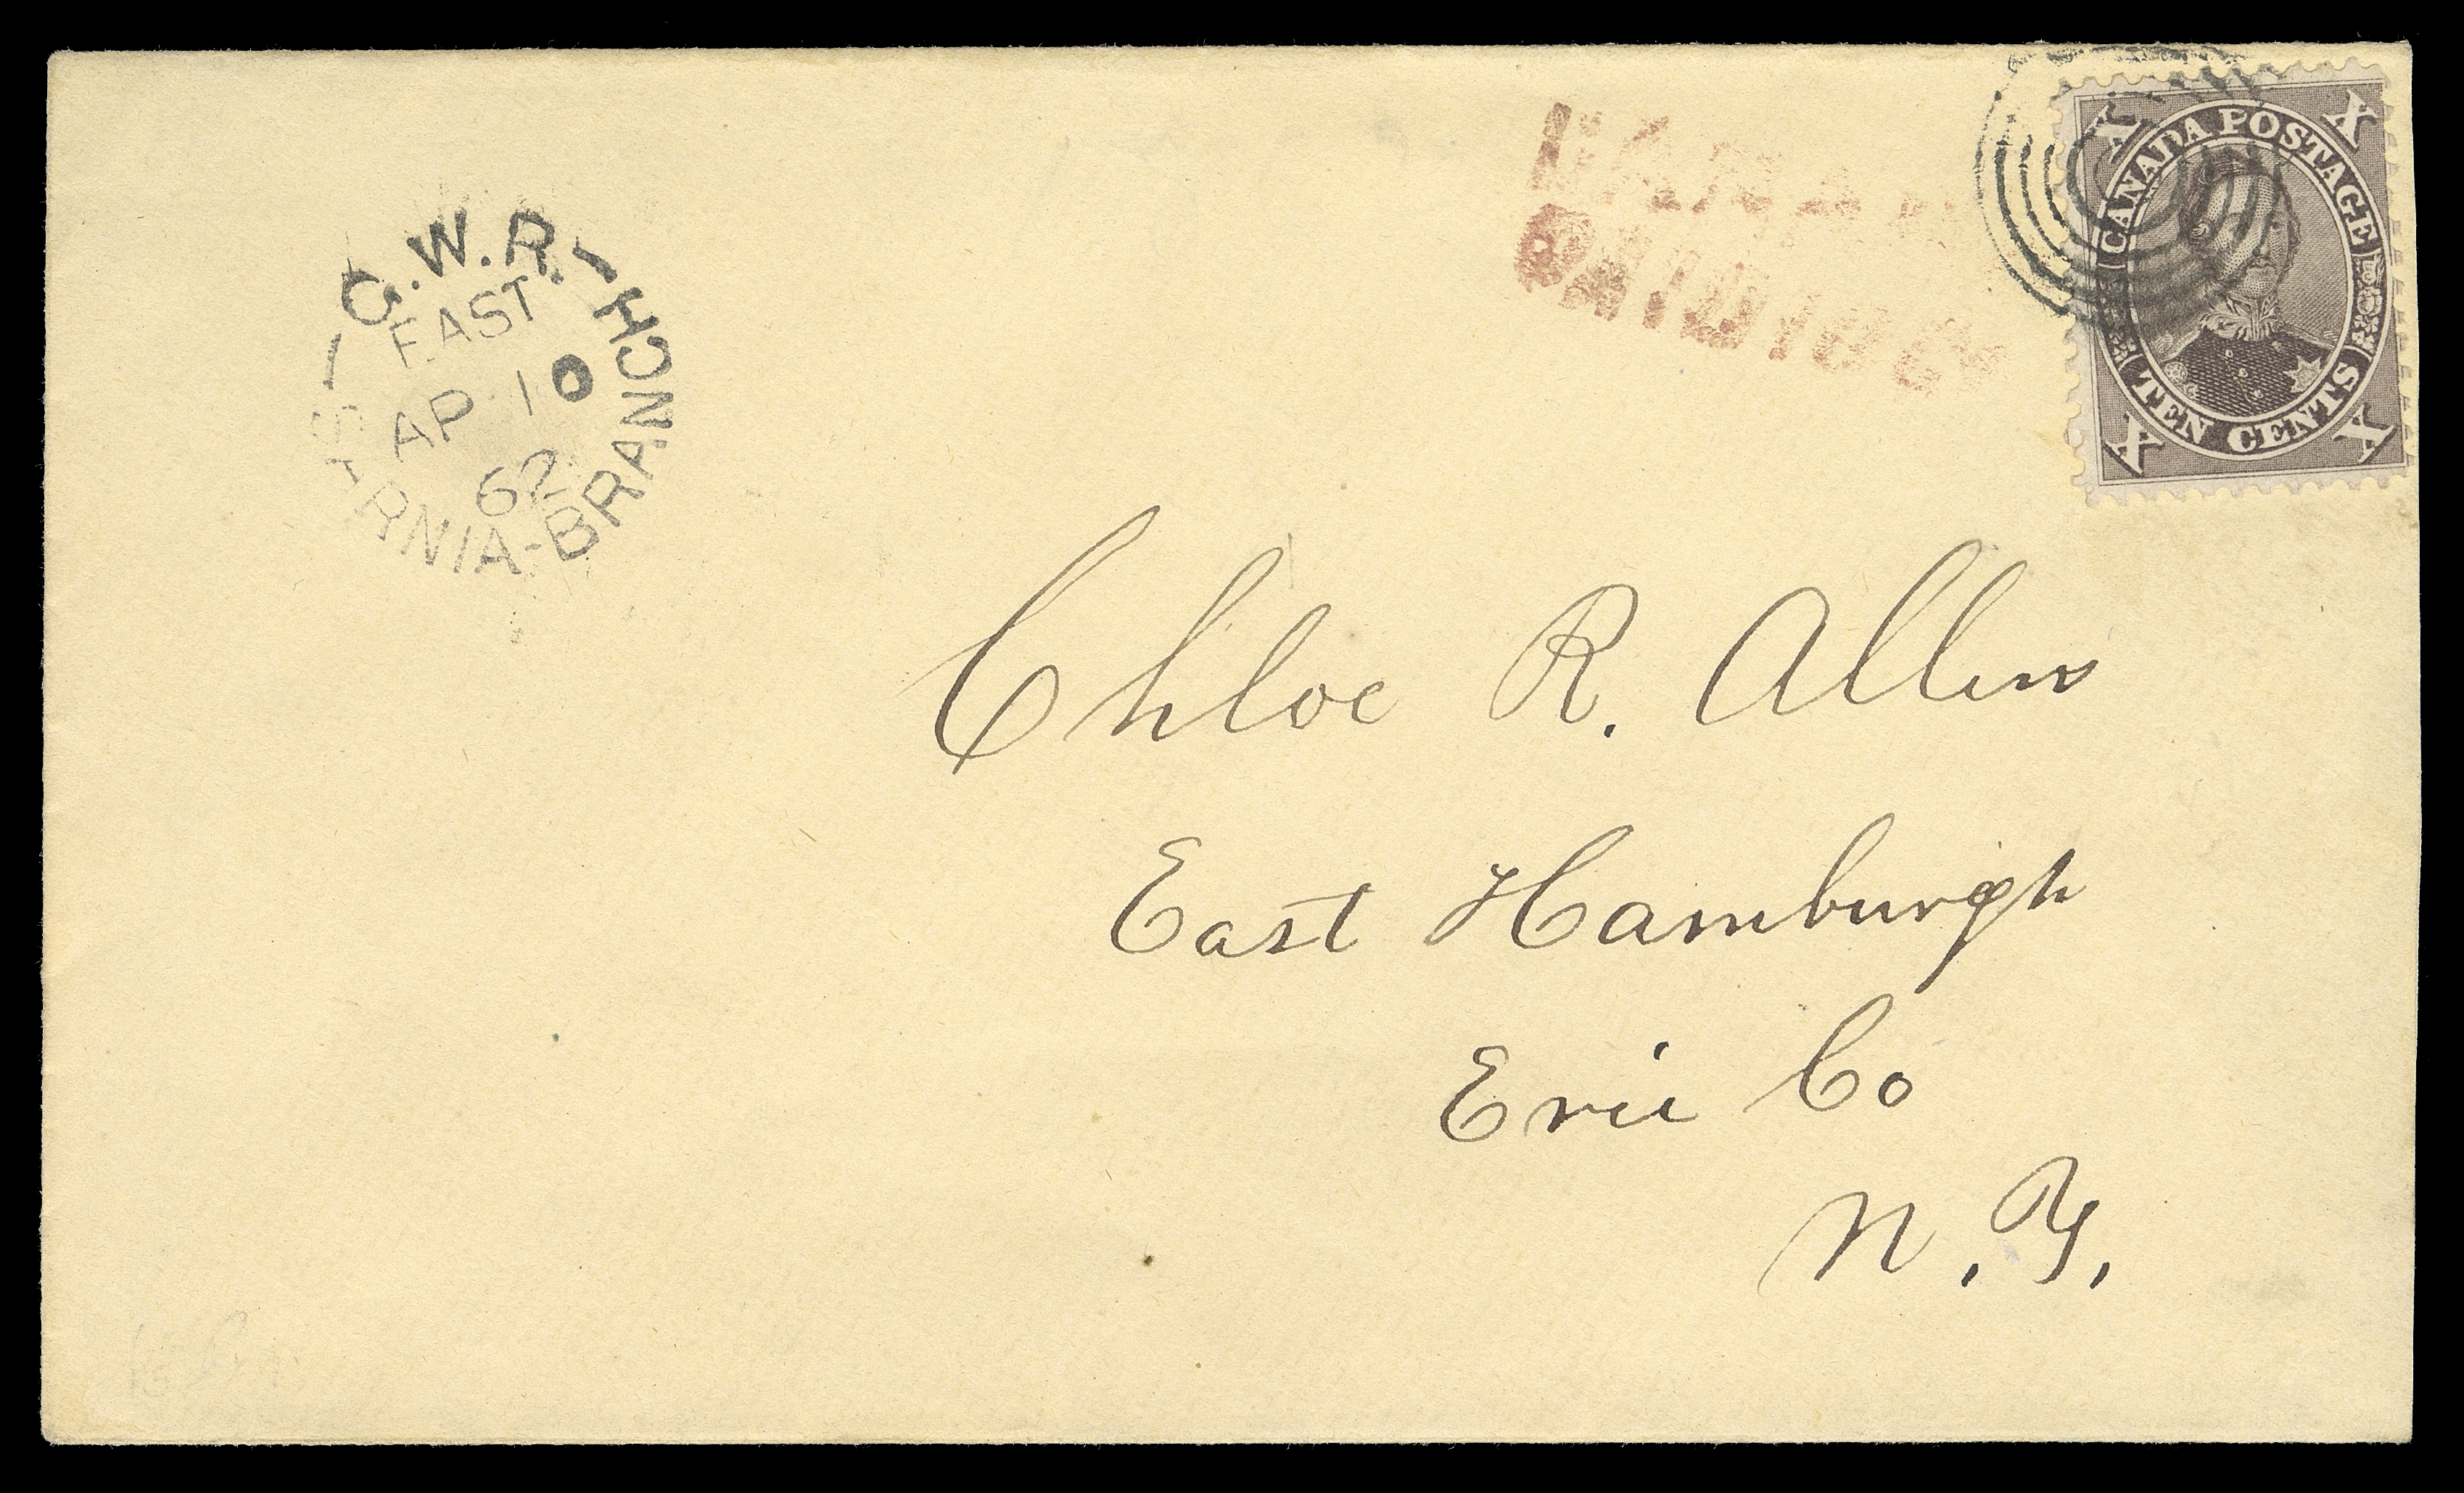 G.W.R.
EAST.
AP 10
62
SARNIA-BRANCH
CANADA
PAID 10 Cts
X X
CANADA POSTAGE
TEN CENTS
X X
Chloe R. Allen
East Hamburgh
Erie Co
N.Y.